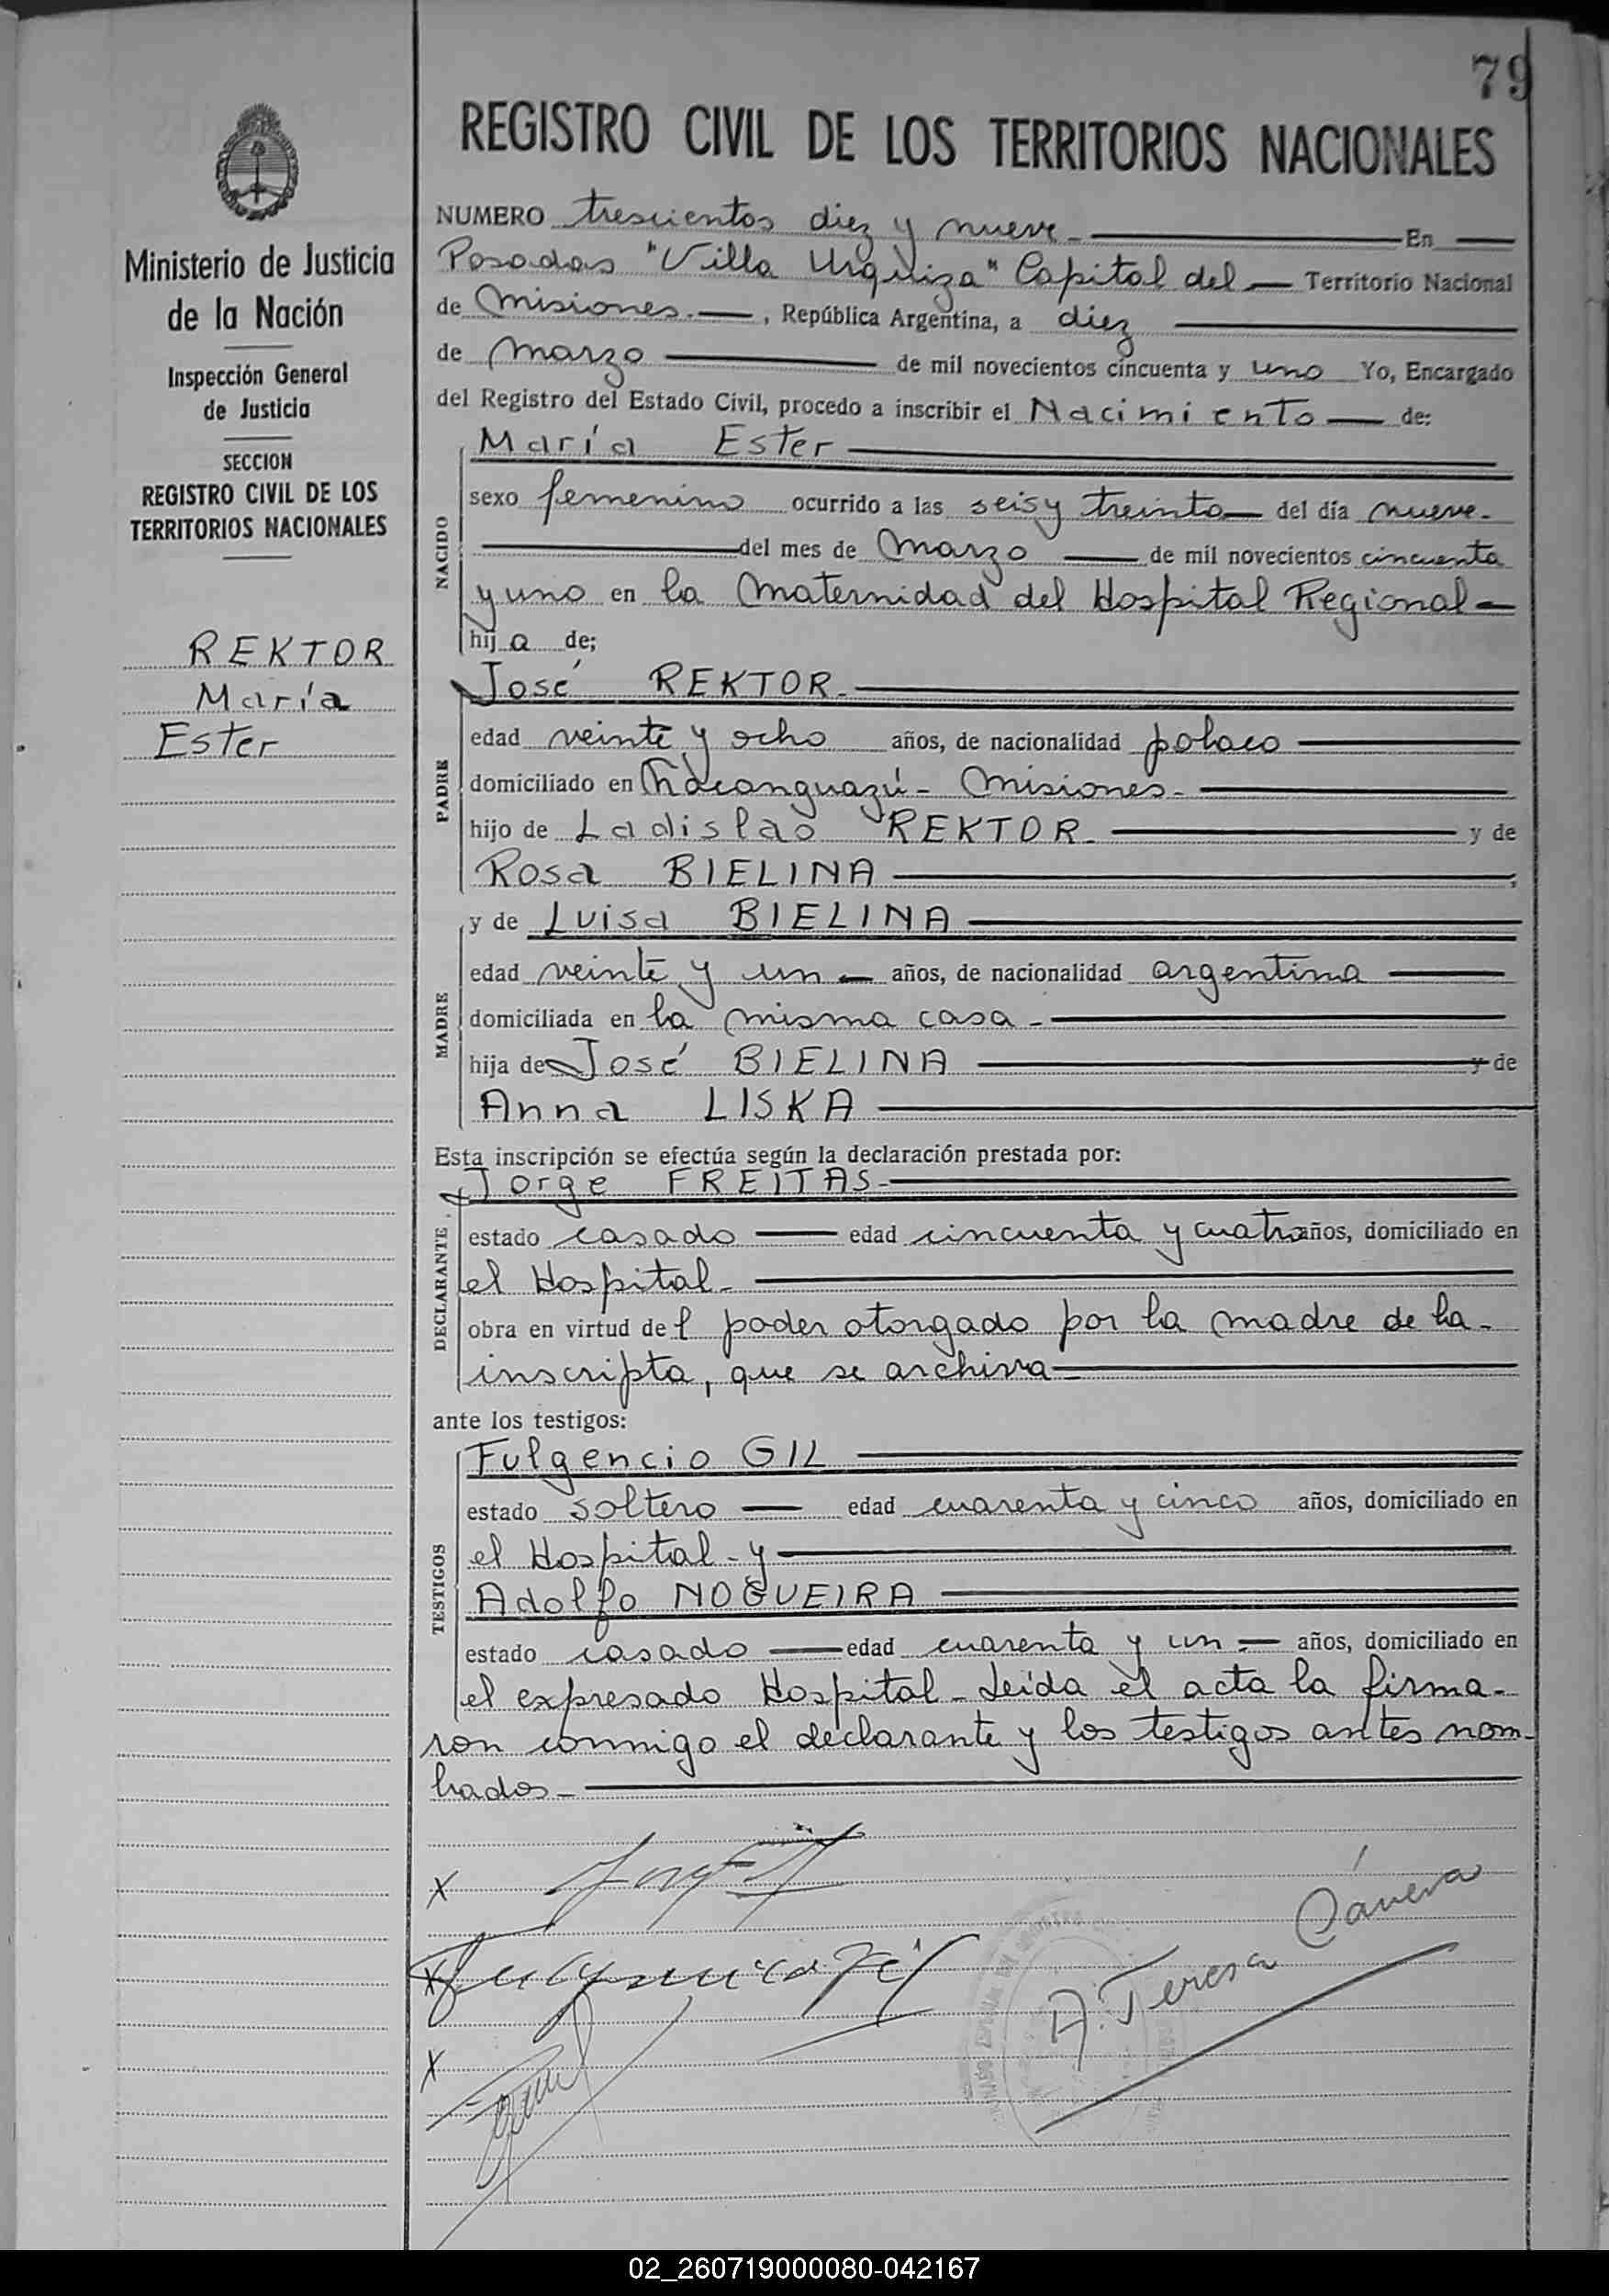 79
REGISTRO CIVIL DE LOS TERRITORIOS NACIONALES
Ministerio de Justicia
de la Nación
Inspección General
de Justicia
SECCION
REGISTRO CIVIL DE LOS
TERRITORIOS NACIONALES
REKTOR
María
Ester
NUMERO trescientos diez y nueve.- En
Posadas "Villa Urquiza" Capital del Territorio Nacional
de Misiones.-, República Argentina, a diez
de marzo de mil novecientos cincuenta y uno Yo, Encargado
del Registro del Estado Civil, procedo a inscribir el Nacimiento de:
NACIDO
María Ester
sexo femenino ocurrido a las seis y treinta del día nueve.-
del mes de marzo de mil novecientos cincuenta
y uno en la Maternidad del Hospital Regional-
hij a de;
PADRE
José REKTOR.-
edad veinte y ocho años, de nacionalidad polaco
domiciliado en Ñacanguazú- Misiones.-
hijo de Ladislao REKTOR.- y de
Rosa BIELINA ;
MADRE
y de Luisa BIELINA
edad veinte y un años, de nacionalidad argentina
domiciliada en la misma casa.-
hija de José BIELINA y de
Anna LISKA
Esta inscripción se efectúa según la declaración prestada por:
DECLARANTE
Jorge FREITAS.-
estado casado edad cincuenta y cuatro años, domiciliado en
el Hospital.-
obra en virtud de l poder otorgado por la madre de la-
inscripta, que se archiva
ante los testigos:
TESTIGOS
Fulgencio GIL
estado soltero edad cuarenta y cinco años, domiciliado en
el Hospital - y
Adolfo NOGUEIRA
estado casado edad cuarenta y un años, domiciliado en
el expresado Hospital - Leída el acta la firma-
ron conmigo el declarante y los testigos antes nom-
brados.-
X
X Fulgencio Gil
X
A. Teresa Cánera
02_260719000080-042167